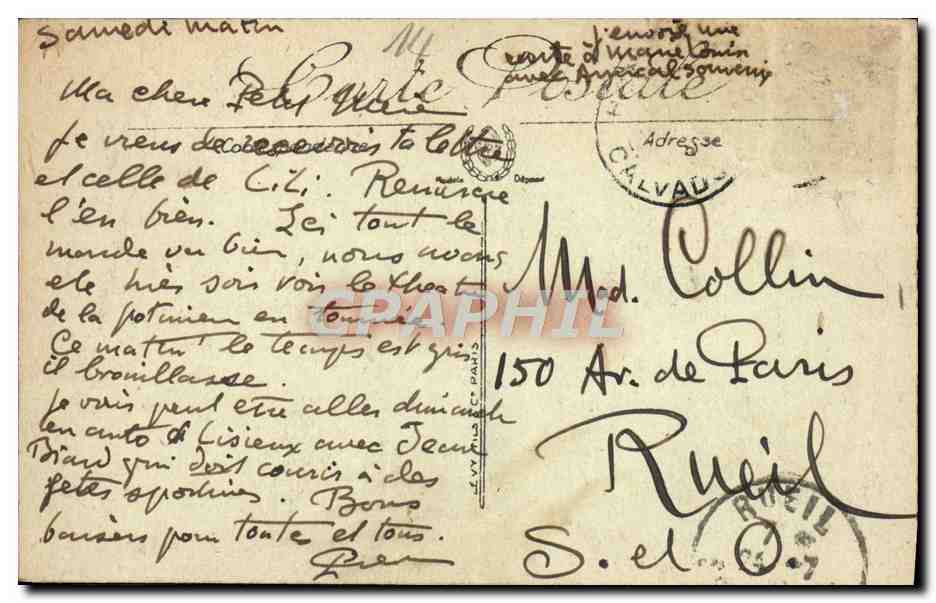 Samedi matin
14
j'envoie une
carte à Marie Louise
avec Amical Souvenir
Carte Postale
Ma chere Petite
Correspondance
Adresse
CALVADOS
Modèle Déposé
Je viens de recevoir ta lettre
et celle de LiLi. Remercie
l'en bien. Ici tout le
monde va bien, nous avons
ete hier soir voir le theatre
de la potiniere en tournée
Ce matin le temps est gris
il brouillasse.
Je vais peut etre aller dimanche
en auto à Lisieux avec Jean
Biard qui doit courir à des
fetes sportives. Bons
baisers pour toutes et tous.
LEVY FILS & Cie PARIS
CPAPHIL
Mad. Collin
150 Av. de Paris
Rueil
S. et O.
RUEIL